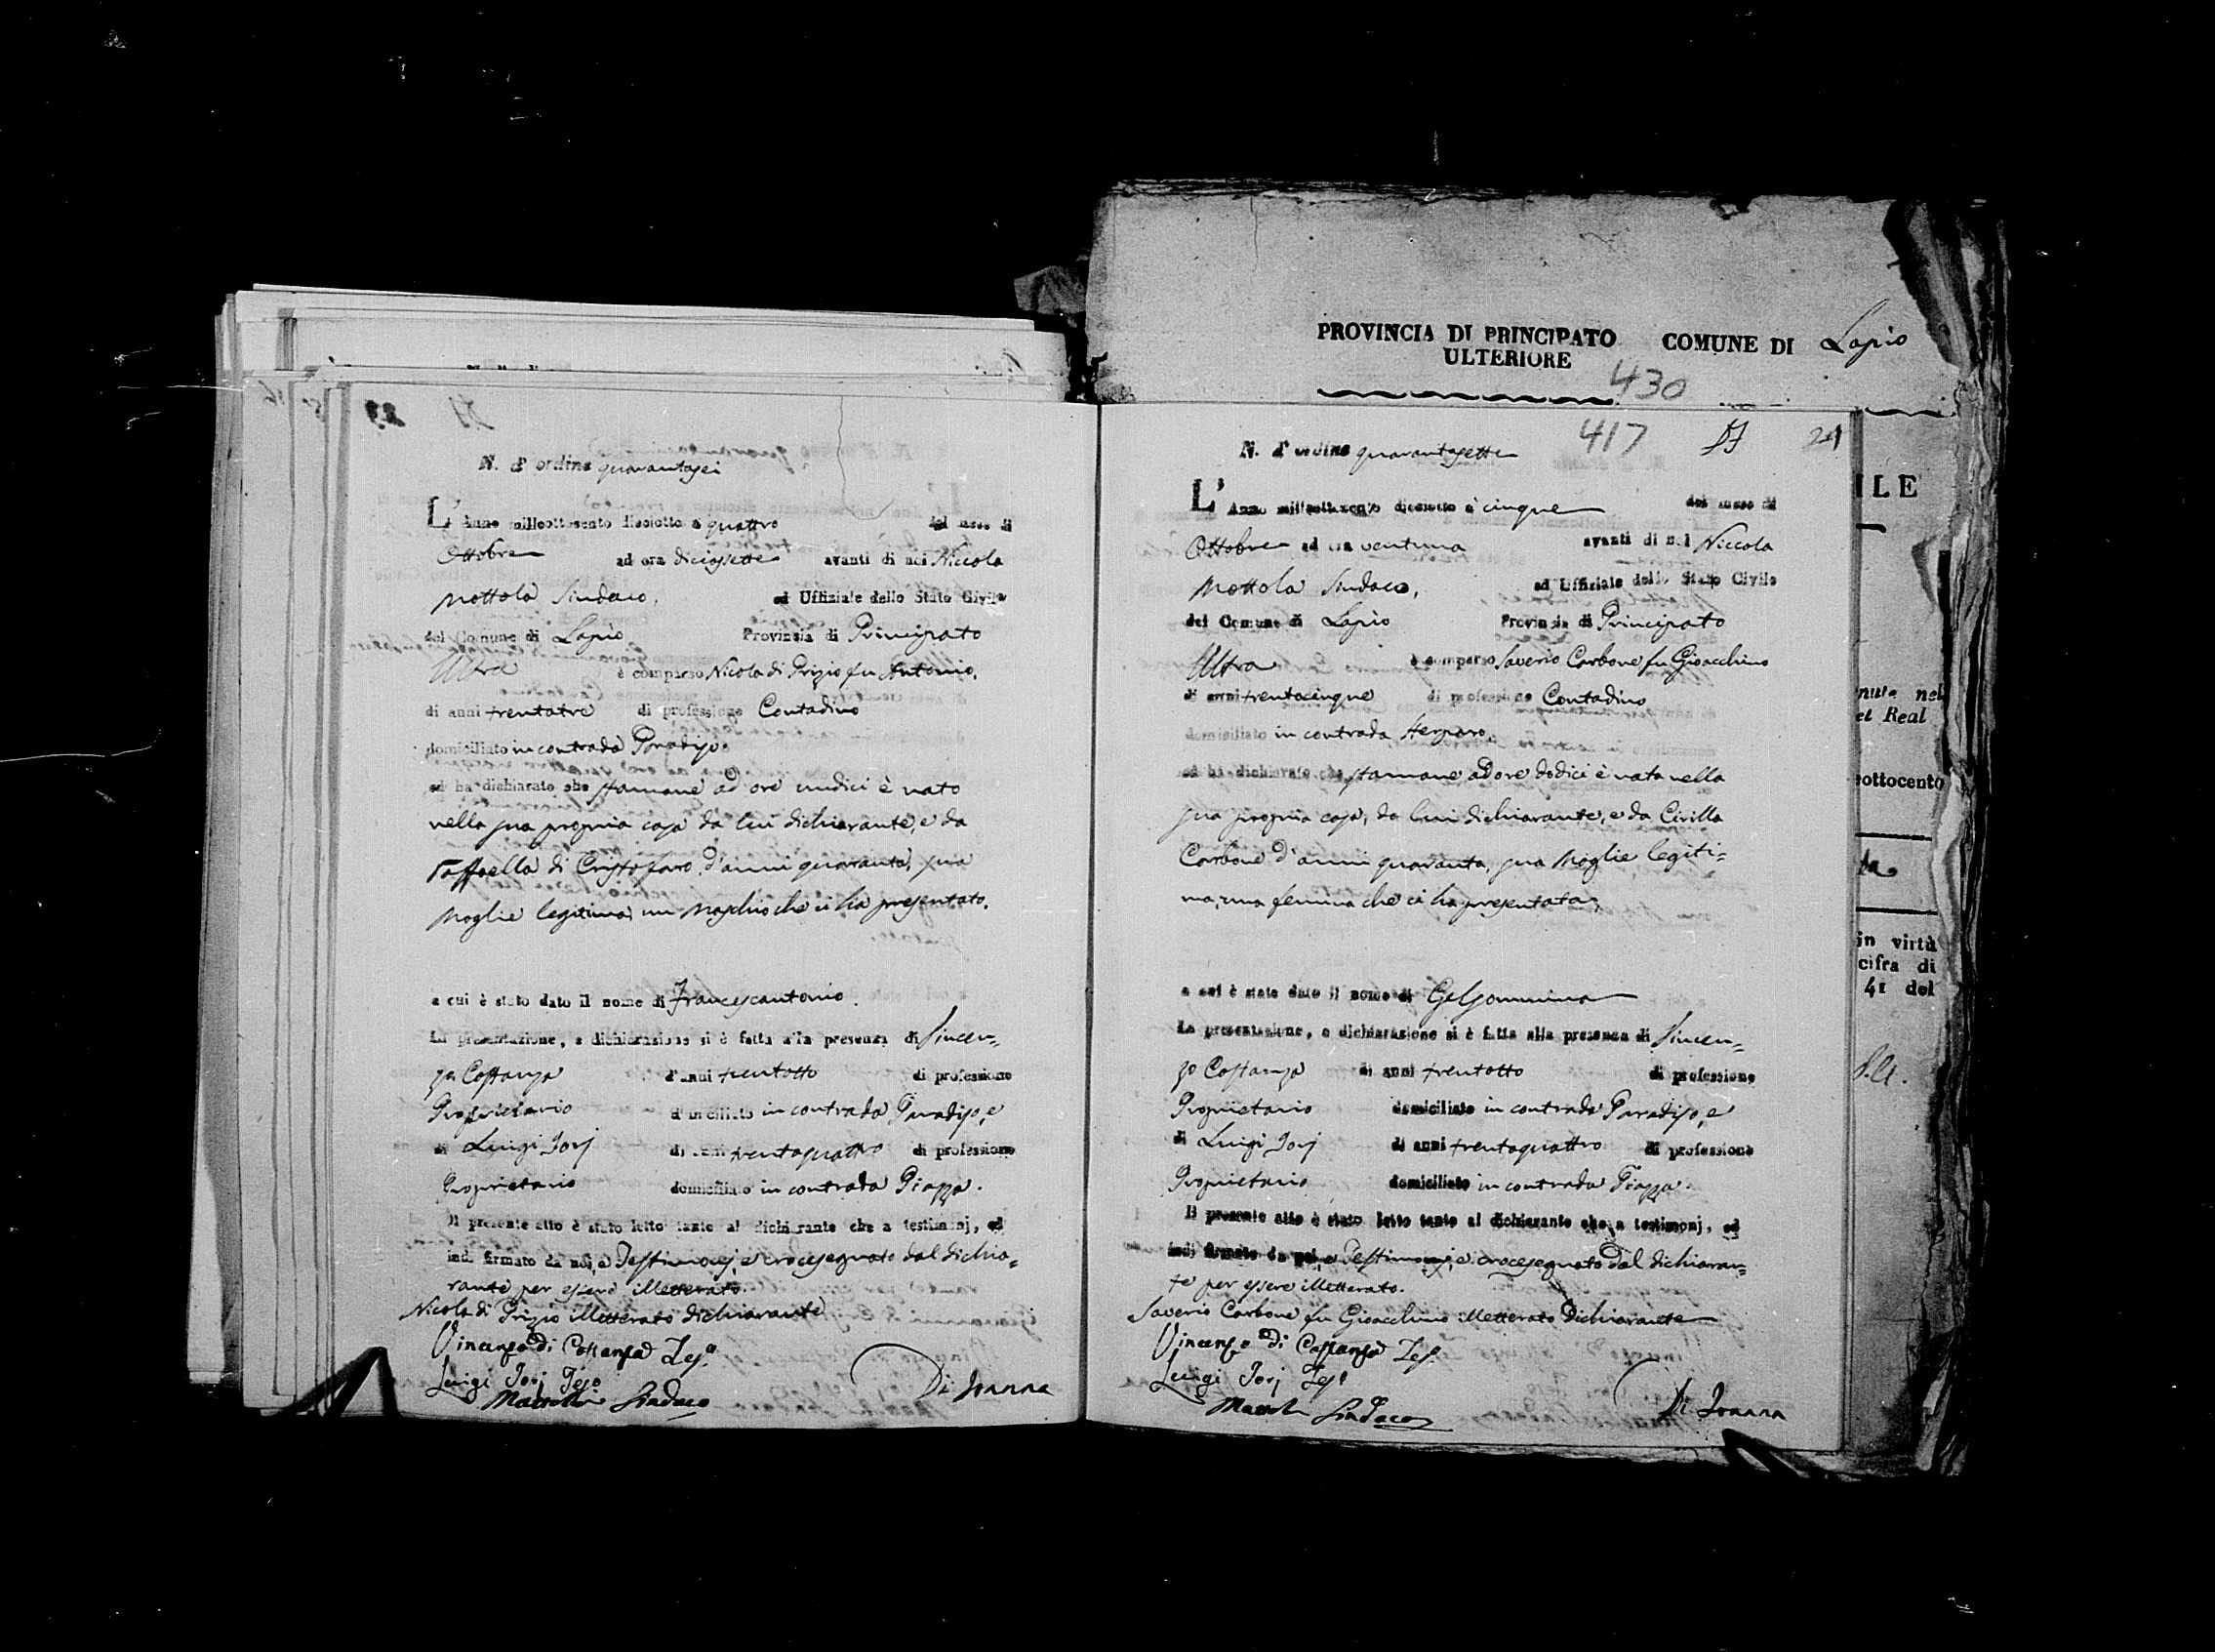 N. d' ordine quarantasei
L' Anno milleottocento dieciotto a quattro del mese di
Ottobre ad ora diciassette avanti di noi Niccola
Mottola Sindaco, ed Uffiziale dello Stato Civile
del Comune di Lapio Provincia di Principato
Ultra è comparso Nicola di Prizio fu Antonio,
di anni trentatre di professione Contadino
domiciliato in contrada Paradiso
ed ha dichiarato che stamane ad ore undici è nato
nella sua propria casa da lui dichiarante, e da
Raffaella di Cristofaro d'anni quaranta, sua
Moglie legittima, un Maschio che ci ha presentato.
a cui è stato dato il nome di Francescantonio.
La presentazione, e dichiarazione si è fatta alla presenza di Vincen=
zo Costanza d'anni trentotto di professione
Proprietario domiciliato in contrada Paradiso, e
di Luigi Iorj di anni trentaquattro di professione
Proprietario domiciliato in contrada Piazza.
Il presente atto è stato letto tanto al dichiarante che a testimonj, ed
indi firmato da noi, e Testimonj, e crocesegnato dal dichia=
rante per essere illetterato.
Nicola di Prizio illetterato dichiarante
Vincenzo di Costanza Tes.
Luigi Iorj Teso
Sindaco
Di Joanna
PROVINCIA DI PRINCIPATO ULTERIORE COMUNE DI Lapio
430
417 24
N. d' ordine quarantasette
L' Anno milleottocento dieciotto a' cinque del mese di
Ottobre ad ora ventuna avanti di noi Niccola
Mottola Sindaco, ed Uffiziale dello Stato Civile
del Comune di Lapio Provincia di Principato
Ultra è comparso Saverio Carbone fu Gioacchino
di anni trentacinque di professione Contadino
domiciliato in contrada
ed ha dichiarato che stamane ad ore dodici è nata nella
sua propria casa, da lui dichiarante, e da Cirilla
Carbone d'anni quaranta, sua Moglie legiti=
ma, una femina che ci ha presentata,
a cui è stato dato il nome di Gelsommina
La presentazione, e dichiarazione si è fatta alla presenza di Vincen=
zo Costanza di anni trentotto di professione
Proprietario domiciliato in contrada Paradiso, e
di Luigi Iorj di anni trentaquattro di professione
Proprietario domiciliato in contrada Piazza.
Il presente atto è stato letto tanto al dichiarante che a testimonj, ed
indi firmato da noi, e Testimonj, e crocesegnato dal dichiaran=
te per essere illetterato.
Saverio Carbone fu Gioacchino illetterato Dichiarante
Vincenzo di Costanza Tes.
Luigi Iorj Tes
Sindaco
Di Joanna
ILE
nute nel
el Real
ottocento
in virtù
cifra di
41 del